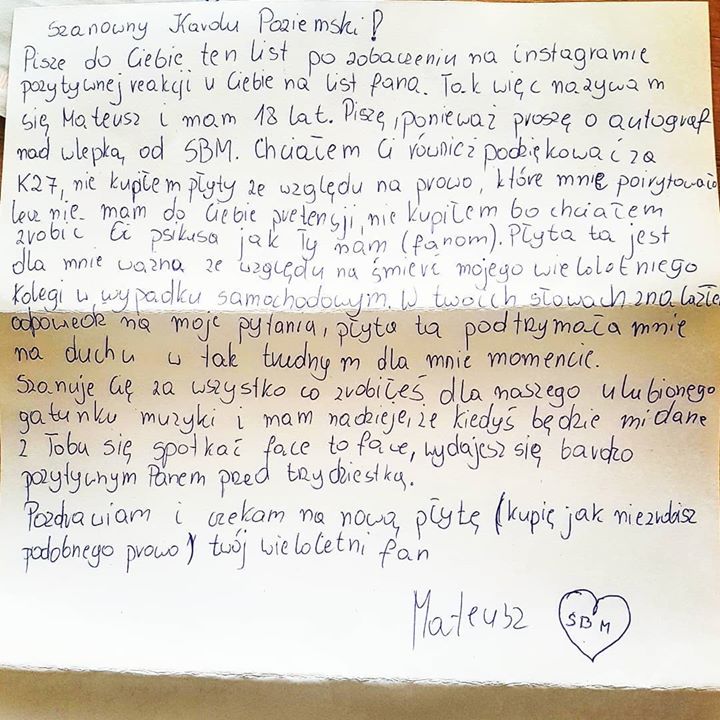 Szanowny Karolu Poziemski!
Pisze do Ciebie ten list po zobaczeniu na instagramie
pozytywnej reakcji u Ciebie na list fana. Tak więc nazywam
się Mateusz i mam 18 lat. Piszę, ponieważ proszę o autograf
nad wlepką od SBM. Chciałem Ci również podziękować za
K27, nie kupiłem płyty ze względu na prowo, które mnie poirytowało
lecz nie mam do Ciebie pretensji, nie kupiłem bo chciałem
zrobić Ci psikusa jak Ty nam (fanom). Płyta ta jest
dla mnie ważna ze względu na śmierć mojego wieloletniego
kolegi w wypadku samochodowym. W twoich słowach znalazłem
odpowiedź na moje pytania, płyta ta podtrzymała mnie
na duchu w tak trudnym dla mnie momencie.
Szanuje Cię za wszystko co zrobiłeś dla naszego ulubionego
gatunku muzyki i mam nadzieje, że kiedyś będzie mi dane
z Tobą się spotkać face to face, wydajesz się bardzo
pozytywnym Panem przed trzydziestką.
Pozdrawiam i czekam na nową płytę (kupię jak nie zrobisz
podobnego prowo) twój wieloletni fan
Mateusz SBM